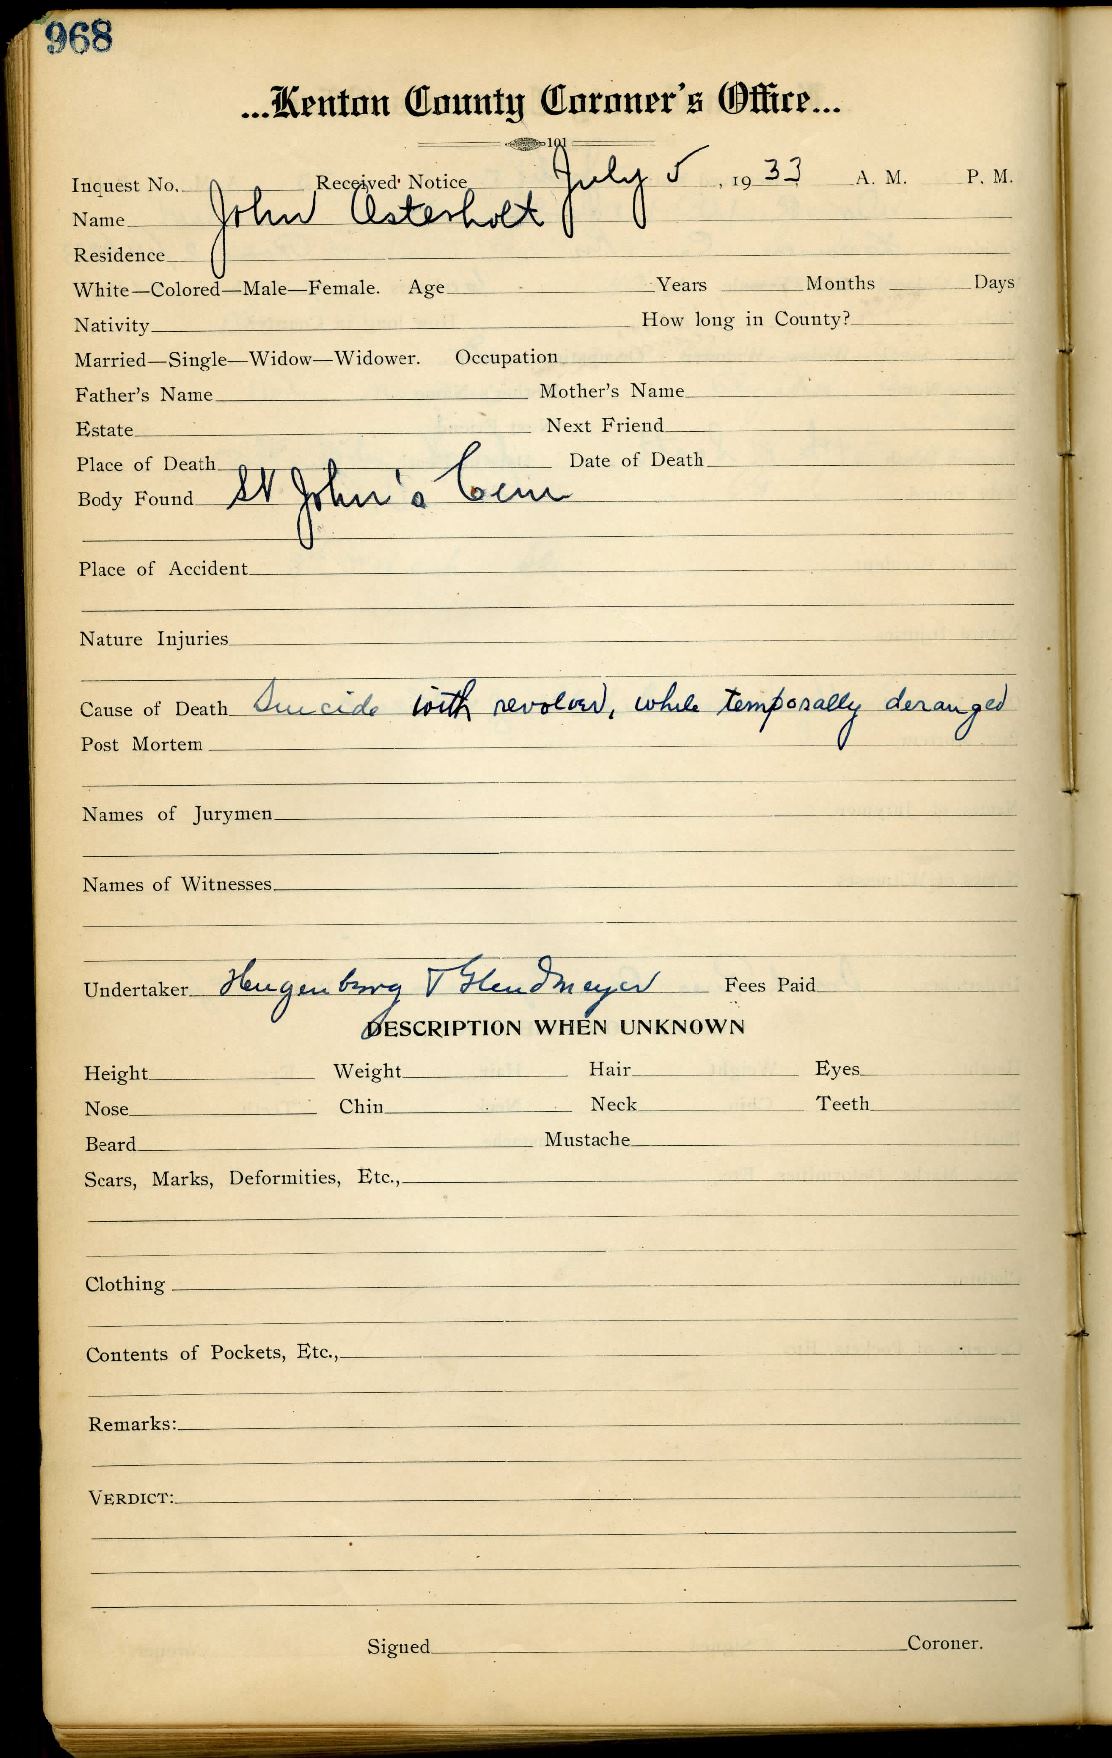 968
...Kenton County Coroner's Office...
101
Inquest No. Received Notice July 5, 1933 A. M. P. M.
Name John Osterholt
Residence
White—Colored—Male—Female. Age Years Months Days
Nativity How long in County?
Married—Single—Widow—Widower. Occupation
Father's Name Mother's Name
Estate Next Friend
Place of Death Date of Death
Body Found St John's Cem
Place of Accident
Nature Injuries
Cause of Death Suicide with revolver, while temporally deranged
Post Mortem
Names of Jurymen
Names of Witnesses
Undertaker Hugenberg & Glendmeyer Fees Paid
DESCRIPTION WHEN UNKNOWN
Height Weight Hair Eyes
Nose Chin Neck Teeth
Beard Mustache
Scars, Marks, Deformities, Etc.,
Clothing
Contents of Pockets, Etc.,
Remarks:
VERDICT:
Signed Coroner.